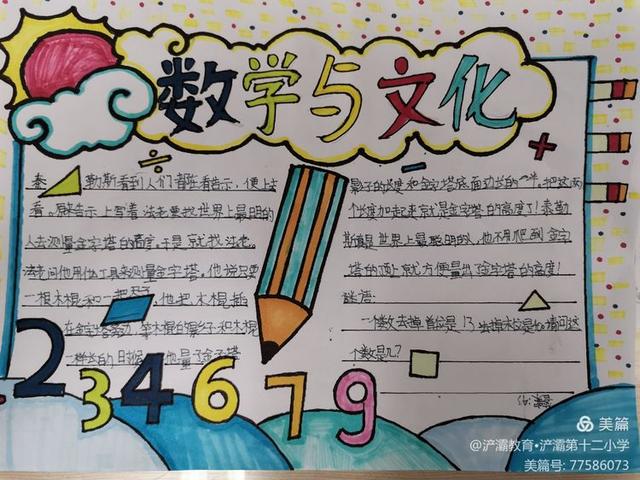 数学与文化
泰勒斯看到人们都在看告示，便上去
看。原来告示上写着法老要找世界上最聪明的
人去测量金字塔的高度。于是就找法老。
法老问他用什么工具来测量金字塔。他说只要
一根木棍和一把尺子，他把木棍插
在金字塔旁边，等木棍的影子和木棍
一样长的时候，他量了金字塔
影子的长度和金字塔底面边长的一半。把这两
个长度加起来就是金字塔的高度了！泰勒
斯真是世界上最聪明的人，他不用爬到金字
塔的顶上就方便量出了金字塔的高度！
谜语：
一个数去掉首位是13去掉末位是40请问这
个数是几？
2 3 4 6 7 9
美篇
@浐灞教育•浐灞第十二小学
美篇号: 77586073